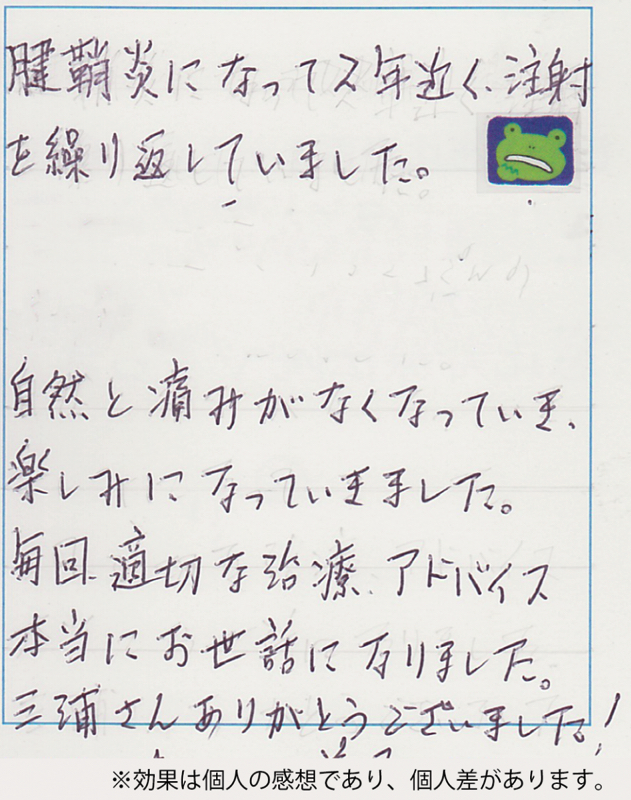 腱鞘炎になって2年近く、注射
を繰り返していました。
自然と痛みがなくなっていき、
楽しみになっていきました。
毎回、適切な治療、アドバイス
本当にお世話になりました。
三浦さんありがとうございました!
※効果は個人の感想であり、個人差があります。